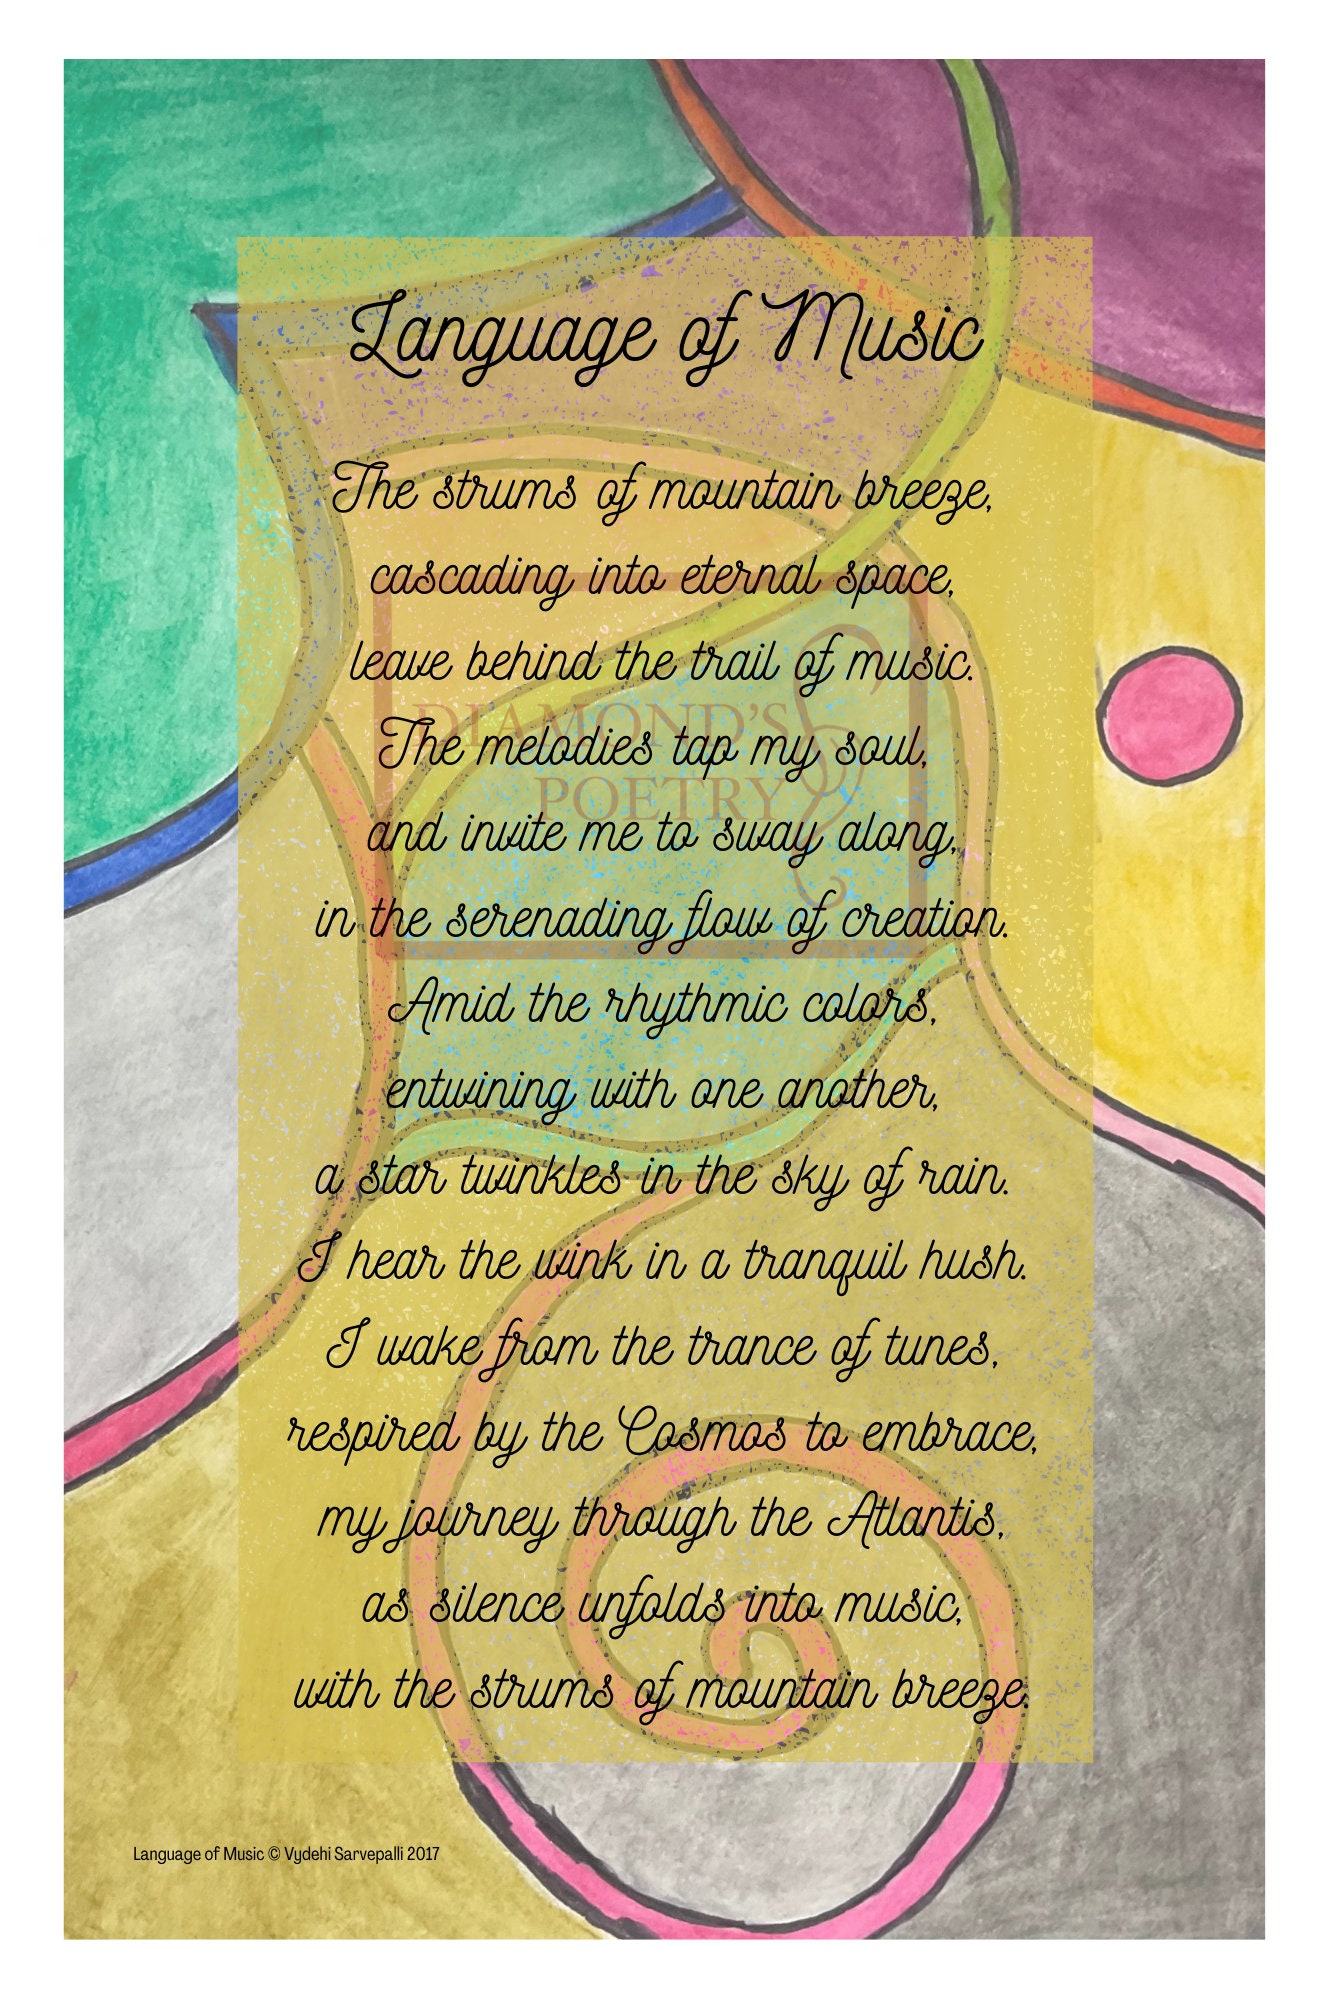 Language of Music
The strums of mountain breeze,
cascading into eternal space,
leave behind the trail of music.
The melodies tap my soul,
and invite me to sway along,
in the serenading flow of creation.
Amid the rhythmic colors,
entwining with one another,
a star twinkles in the sky of rain.
I hear the wink in a tranquil hush.
I wake from the trance of tunes,
respired by the Cosmos to embrace,
my journey through the Atlantis,
as silence unfolds into music,
with the strums of mountain breeze.
DIAMOND'S
POETRY
Language of Music © Vydehi Sarvepalli 2017